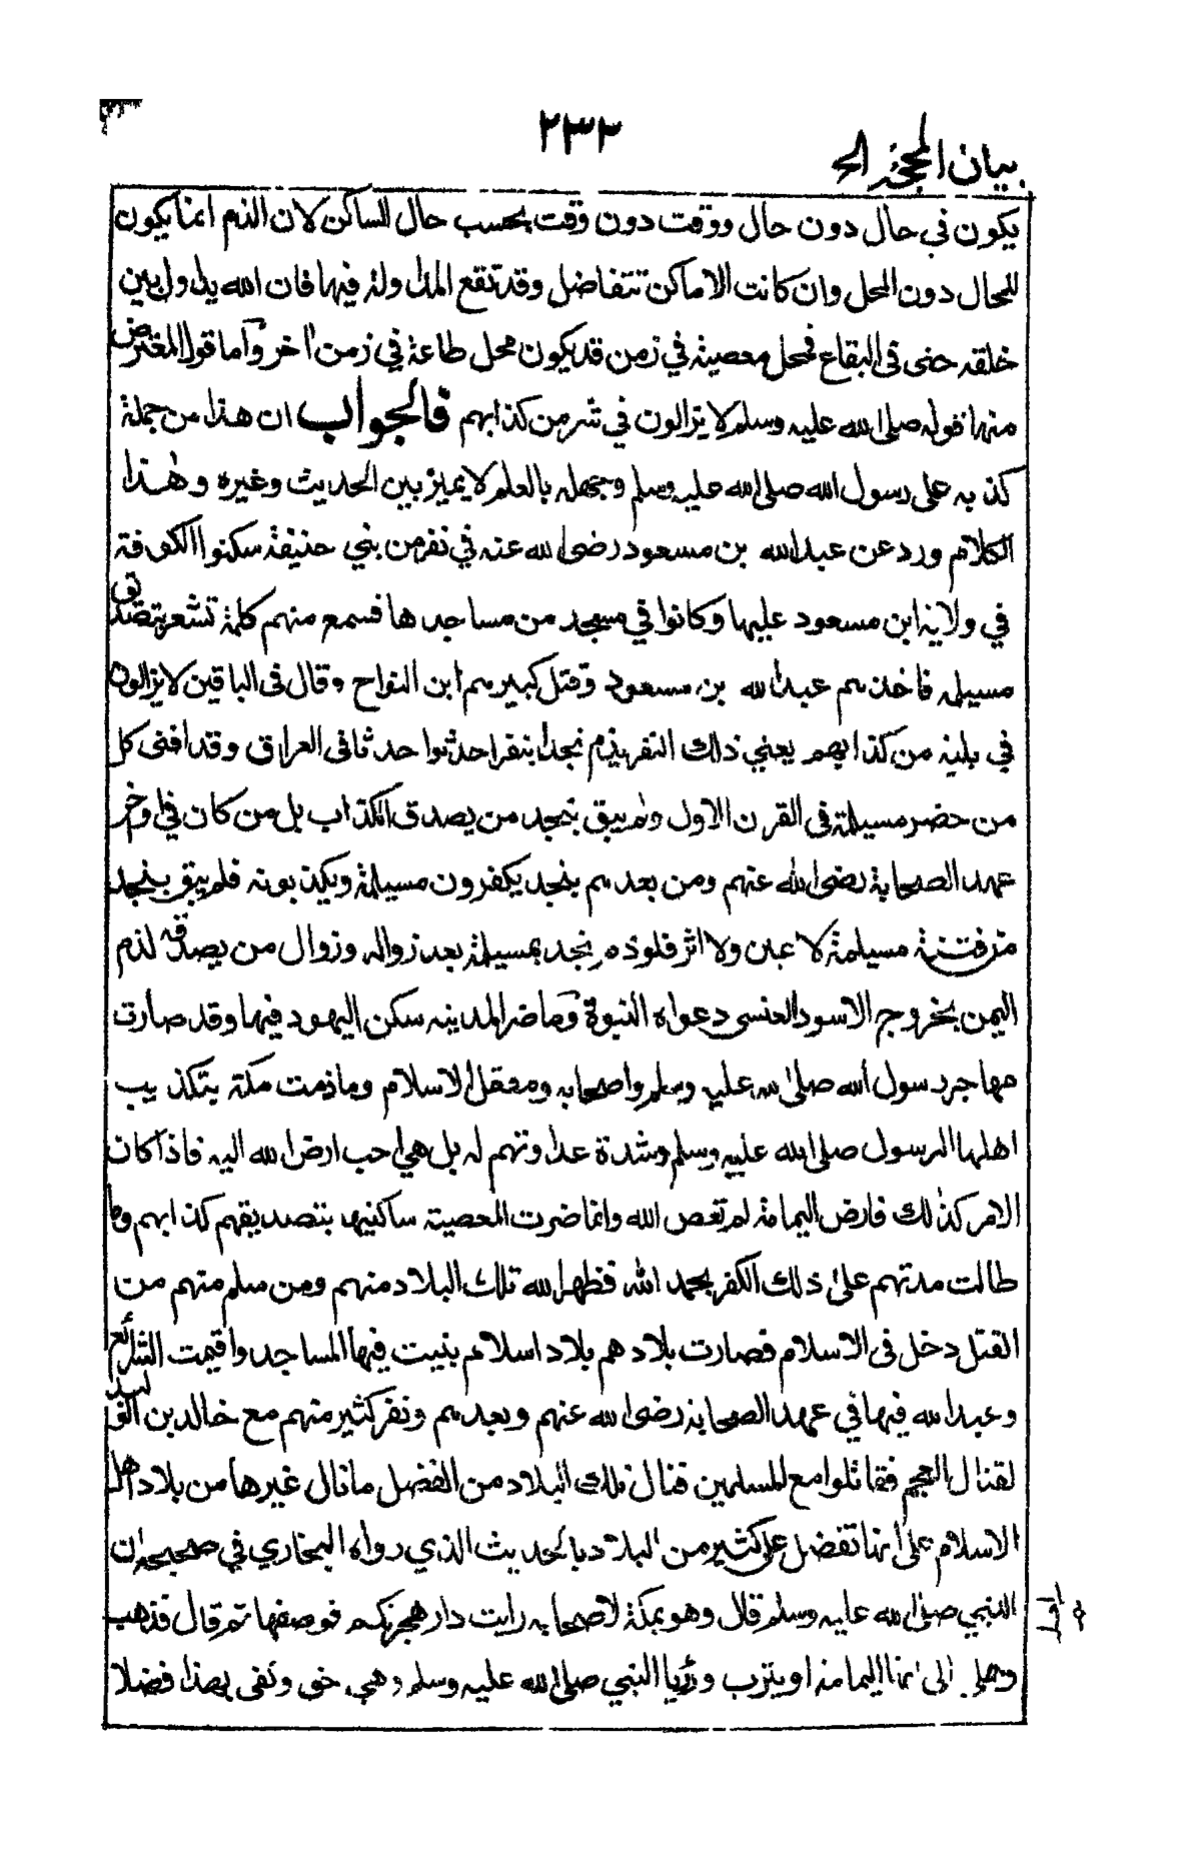 ٢٣٢
بيان المحجة الخ
يكون في حال دون حال ووقت دون وقت بحسب حال الساكن لان الذم انما يكون
للحال دون المحل وان كانت الاماكن تتفاضل وقد تقع المداولة فيها فان الله يداول بين
خلقه حتى في البقاع فمحل معصية في زمن قد يكون محل طاعة في زمن اخر وأما قول المعترض
منها قوله صلى الله عليه وسلم لا يزالون في شر من كذابهم فالجواب ان هذا من جملة
كذبه على رسول الله صلى الله عليه وسلم وجهله بالعلم لا يميز بين الحديث وغيره وهذا
الكلام ورد عن عبدالله بن مسعود رضى الله عنه في نفر من بني حنيفة سكنوا الكوفة
في ولاية ابن مسعود عليها وكانوا في مسجد من مساجدها فسمع منهم كلمة تشعر بتصديق
مسيلمة فاخذهم عبدالله بن مسعود وقتل كبيرهم ابن النواح وقال في الباقين لا يزالون
في بلية من كذابهم يعني ذلك النفر يذم نجدا بنفر احدثوا حدثا في العراق وقد افنى كل
من حضر مسيلمة في القرن الاول ولم يبق بنجد من يصدق الكذاب بل من كان في اواخر
عهد الصحابة رضى الله عنهم ومن بعدهم بنجد يكفرون مسيلمة ويكذبونه فلم يبق بنجد
من فتنة مسيلمة لا عين ولا اثر فلو ذم نجد بمسيلمة بعد زواله وزوال من يصدقه لذم
اليمن بخروج الاسود العنسى دعواه النبوة وما ضر المدينه سكن اليهود فيها وقد صارت
مهاجر رسول الله صلى الله عليه وسلم واصحابه ومعقل الاسلام وما ذمت مكة بتكذيب
اهلها الرسول صلى الله عليه وسلم وشدة عداوتهم له بل هي احب ارض الله اليه فاذا كان
الامر كذلك فارض اليمامة لم تعص الله وانما ضرت المعصية ساكنيها بتصديقهم كذابهم وما
طالت مدتهم على ذلك الكفر بحمد الله فطهر الله تلك البلاد منهم ومن سلم منهم من
القتل دخل في الاسلام فصارت بلادهم بلاد اسلام بنيت فيها المساجد واقيمت الشرائع
وعبد الله فيها في عهد الصحابة رضى الله عنهم وبعدهم ونفر كثير منهم مع خالد بن الوليد
لقتال العجم فقاتلوا مع المسلمين فنال تلك البلاد من الفضل ما نال غيرها من بلاد اهل
الاسلام على انها تفضل على كثير من البلاد بالحديث الذي رواه البخاري في صحيحه ان
النبي صلى الله عليه وسلم قال وهو بمكة لاصحابه رايت دار هجرتكم فوصفها ثم قال فذهب
وهلي الى انها اليمامة او يثرب ورؤيا النبي صلى الله عليه وسلم وهي حق وكفى بهذا فضلا